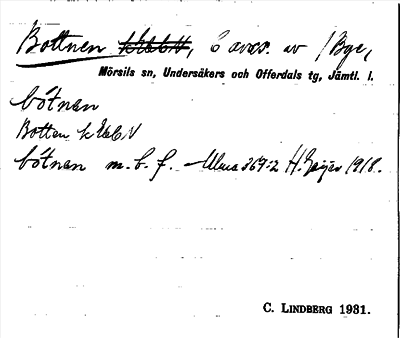 Bottnen kxbbH, ö avs. av /Bye,
Mörsils sn, Undersåkers och Offerdals tg, Jämtl. l.
bo´tnan
Botten
bo´tnan m. b. f. Ulma 367:2 H. Geijer 1918.
C. LINDBERG 1931.